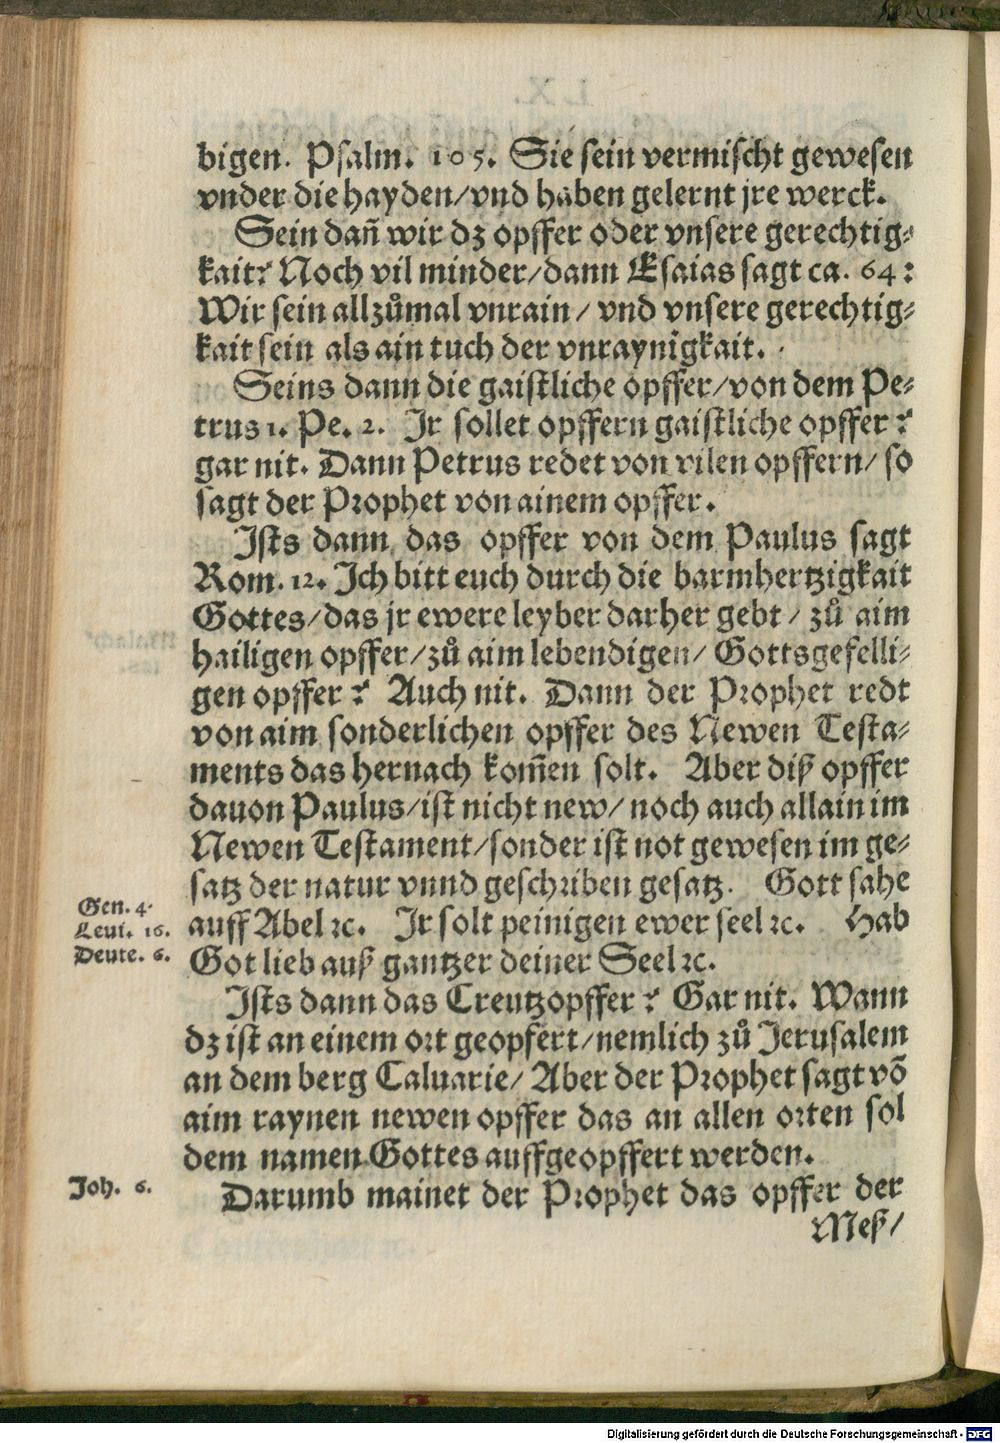 bigen. Psalm. 105. Sie sein vermischt gewesen
vnder die hayden/vnd haben gelernt jre werck.
Sein dañ wir dz opffer oder vnsere gerechtig⸗
kait? Noch vil minder/dann Esaias sagt ca. 64:
Wir sein allzůmal vnrain/ vnd vnsere gerechtig⸗
kait sein als ain tuch der vnraynigkait.
Seins dann die gaistliche opffer/von dem Pe⸗
trus 1. Pe. 2. Jr sollet opffern gaistliche opffer?
gar nit. Dann Petrus redet von vilen opffern/ so
sagt der Prophet von ainem opffer.
Ists dann das opffer von dem Paulus sagt
Rom. 12. Ich bitt euch durch die barmhertzigkait
Gottes/das jr ewere leyber darher gebt/ zů aim
hailigen opffer/zů aim lebendigen/ Gottsgefelli⸗
gen opffer? Auch nit. Dann der Prophet redt
von aim sonderlichen opffer des Newen Testa⸗
ments das hernach kom̃en solt. Aber diß opffer
dauon Paulus/ist nicht new/ noch auch allain im
Newen Testament/sonder ist not gewesen im ge⸗
satz der natur vnnd geschriben gesatz. Gott sahe
Gen. 4.
auff Abel ꝛc. Jr solt peinigen ewer seel ꝛc. Hab
Leui. 16.
Got lieb auß gantzer deiner Seel ꝛc.
Deute. 6.
Ists dann das Creutzopffer? Gar nit. Wann
dz ist an einem ort geopfert/nemlich zů Jerusalem
an dem berg Caluarie/ Aber der Prophet sagt võ
aim raynen newen opffer das an allen orten sol
dem namen Gottes auffgeopffert werden.
Joh. 6.
Darumb mainet der Prophet das opffer der
Meß/
Digitalisierung gefördert durch die Deutsche Forschungsgemeinschaft - DFG